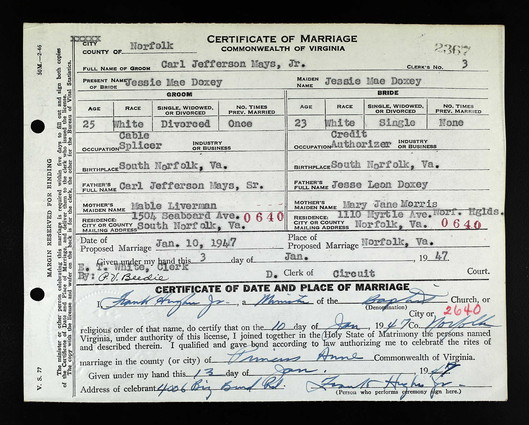 XXXXX
CITY
COUNTY OF Norfolk
CERTIFICATE OF MARRIAGE
COMMONWEALTH OF VIRGINIA
2367
FULL NAME OF GROOM Carl Jefferson Mays, Jr. CLERK'S NO. 3
PRESENT NAME OF BRIDE Jessie Mae Doxey MAIDEN NAME Jessie Mae Doxey
GROOM BRIDE
AGE RACE SINGLE, WIDOWED, OR DIVORCED NO. TIMES PREV. MARRIED AGE RACE SINGLE, WIDOWED, OR DIVORCED NO. TIMES PREV. MARRIED
25 White Divorced Once 23 White Single None
OCCUPATION Cable Splicer INDUSTRY OR BUSINESS OCCUPATION Credit Authorizer INDUSTRY OR BUSINESS
BIRTHPLACE South Norfolk, Va. BIRTHPLACE South Norfolk, Va.
FATHER'S FULL NAME Carl Jefferson Mays, Sr. FATHER'S FULL NAME Jesse Leon Doxey
MOTHER'S MAIDEN NAME Mable Liverman MOTHER'S MAIDEN NAME Mary Jane Morris
RESIDENCE: CITY OR COUNTY MAILING ADDRESS 1504 Seaboard Ave. South Norfolk, Va. 0640 RESIDENCE: CITY OR COUNTY MAILING ADDRESS 1110 Myrtle Ave. Norf. Hglds. Norfolk, Va. 0640
Date of Proposed Marriage Jan. 10, 1947 Place of Proposed Marriage Norfolk, Va.
Given under my hand this 3 day of Jan. , 1947
E. T. White, Clerk
By: P.V. Beedie D. Clerk of Circuit Court.
CERTIFICATE OF DATE AND PLACE OF MARRIAGE
I, Frank Hughes Jr., a Minister of the Baptist Church, or
(Denomination)
City or 2640
religious order of that name, do certify that on the 10 day of Jan 1947, Co Norfolk
Virginia, under authority of this license, I joined together in the Holy State of Matrimony the persons named
and described therein. I qualified and gave bond according to law authorizing me to celebrate the rites
of marriage in the county (or city) of Princess Anne Commonwealth of Virginia.
Given under my hand this 13 day of Jan. 1947
Address of celebrant 4006 Frank Hughes Jr.
(Person who performs ceremony sign here.)
50M—2-46
MARGIN RESERVED FOR BINDING
V. S. 77